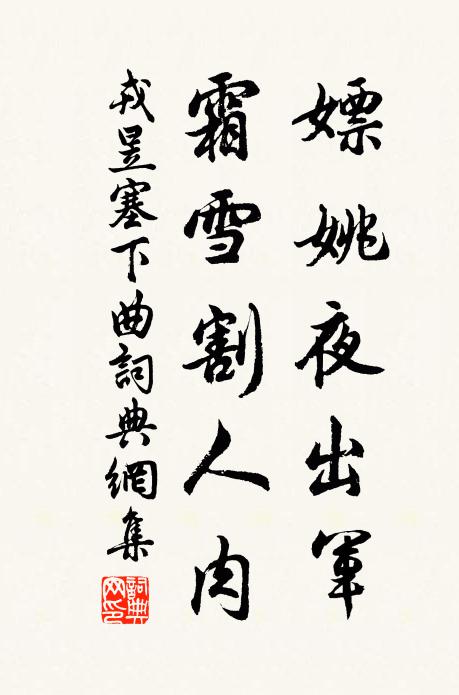 嫖姚夜出軍
霜雪割人肉
戎昱塞下曲詞典網集
詞典网印